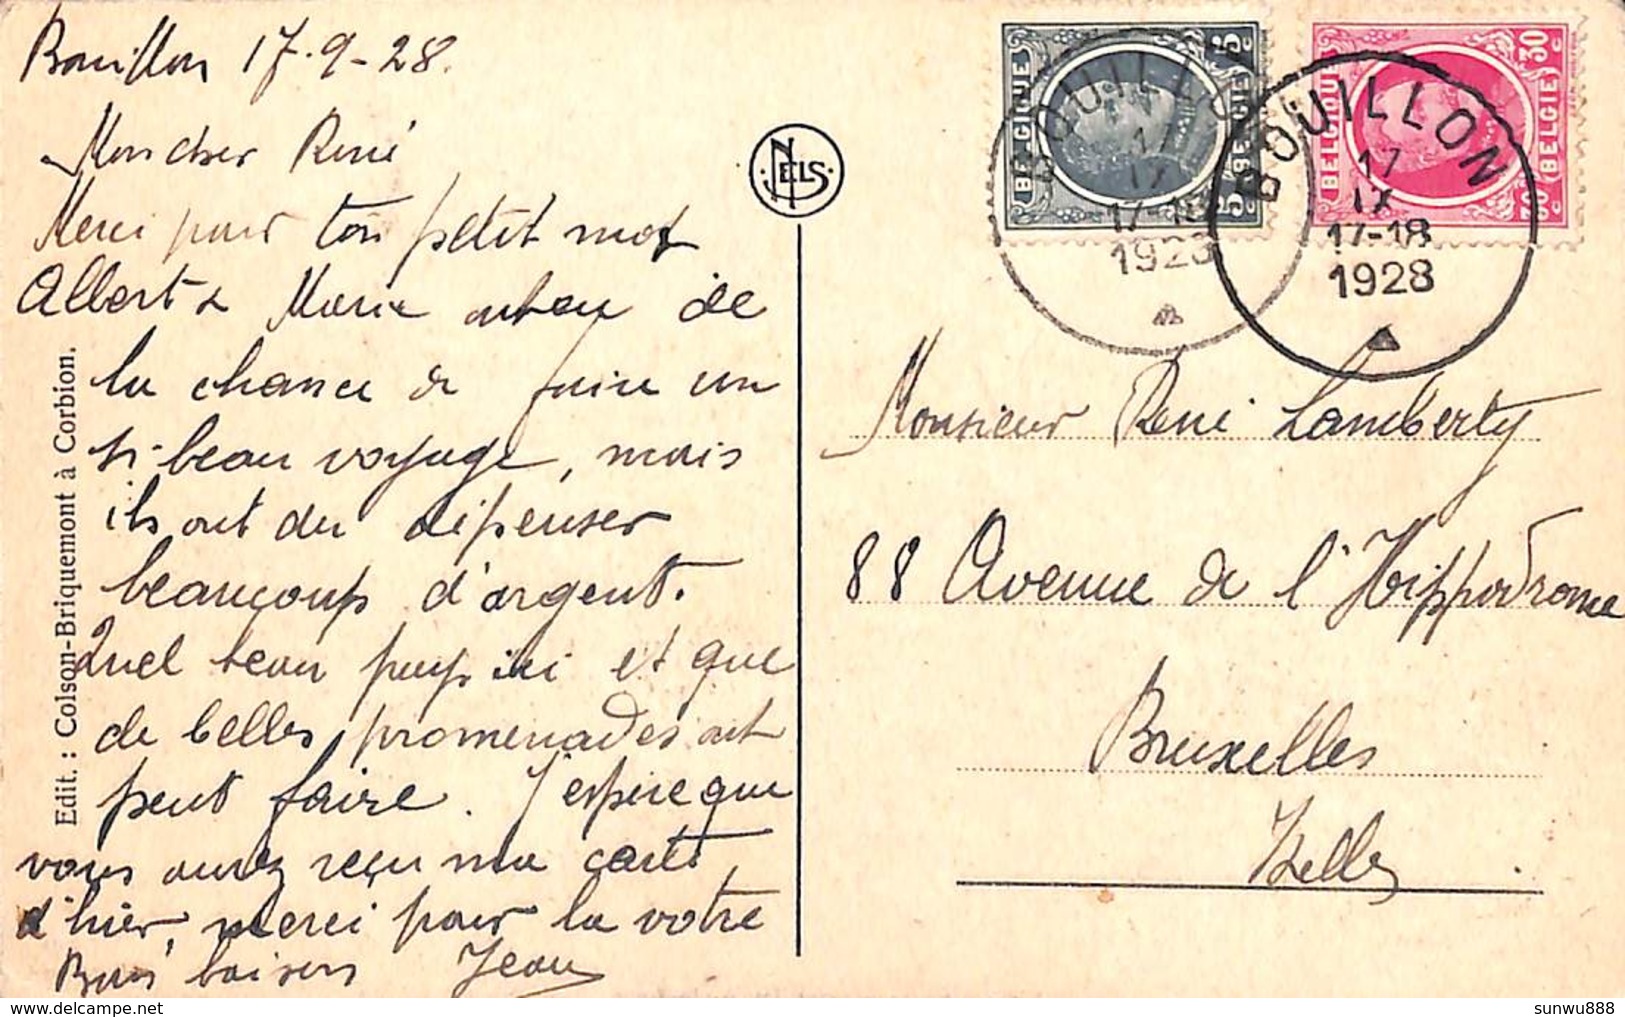 Bouillon 17-9-28.
Mon cher René
Merci pour ton petit mot
Albert & Marie ont eu de
la chance de faire un
si beau voyage, mais
ils ont du dépenser
beaucoup d'argent.
Quel beau pays ici et que
de belles promenades ont
peut faire. J'espère que
vous avez reçu ma carte
d'hier, merci pour la votre
Bons baisers Jean
Edit. : Colson-Briquemont à Corbion.
NELS
BELGIQUE 5c BELGIË 5c
BELGIQUE 30c BELGIË 30c
BOUILLON
17
IX
17-18
1928
BOUILLON
17
IX
17-18
1928
Monsieur René Lamberty
88 Avenue de l'Hippodrome
Bruxelles
Ixelles
sunwu888